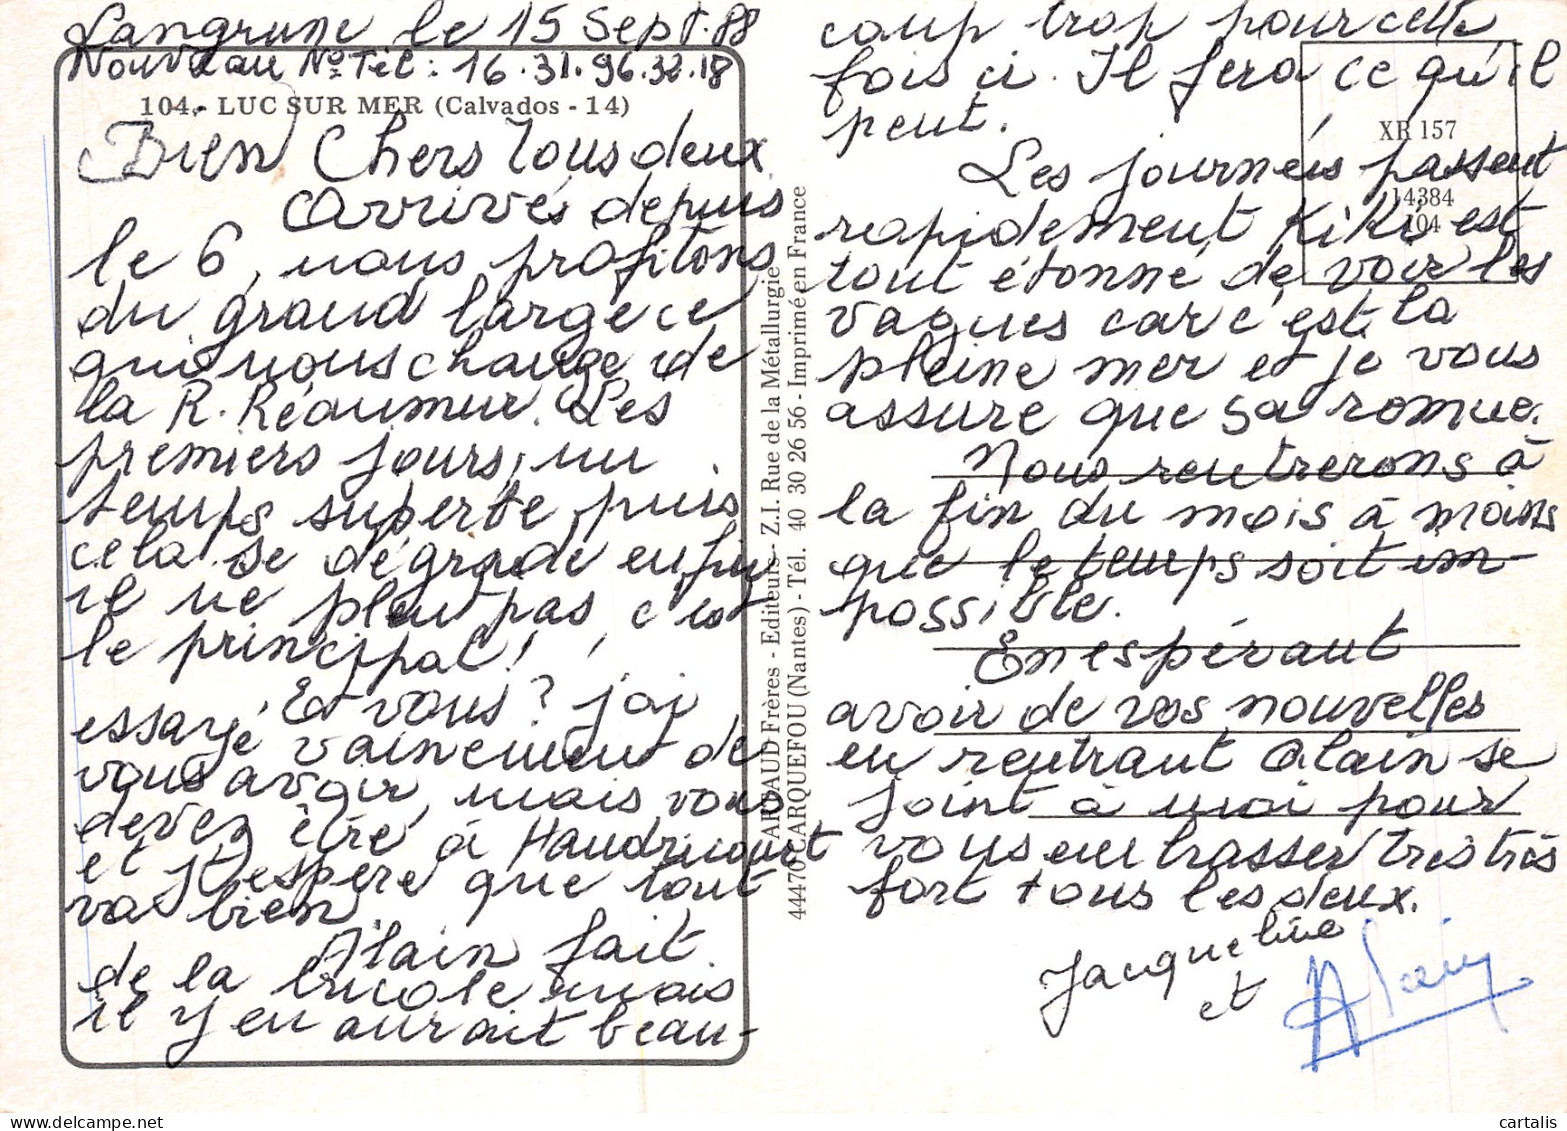 Langrune le 15 Sept. 88
Nouveau No Tél : 16.31.96.32.18
104.- LUC SUR MER (Calvados - 14)
Bien Chers Tous deux
Arrivés depuis
le 6, nous profitons
du grand large ce
qui nous change de
la R. Réaumur. Les
premiers jours, un
temps superbe puis
cela se dégrade enfin
il ne pleut pas, c'est
le principal !
Et vous ? j'ai
essayé vainement de
vous avoir, mais vous
devez être à Haudricourt
et j'espère que tout
va bien.
Alain fait
de la bricole mais
il y en aurait beau-
coup trop pour cette
fois ci. Il fera ce qu'il
peut.
Les journéés passent
rapidement Kiki est
tout étonné de voir les
vagues car c'est la
pleine mer et je vous
assure que sa remue.
Nous rentrerons à
la fin du mois à moins
que le temps soit im-
possible.
En espérant
avoir de vos nouvelles
en rentrant Alain se
joint à moi pour
vous embrasser très très
fort tous les deux.
Jacqueline
et Alain
ARTAUD Frères - Editeurs - Z.I. Rue de la Métallurgie
44470 CARQUEFOU (Nantes) - Tél. 40 30 26 56 - Imprimé en France
XR 157
14384
104
cartalis